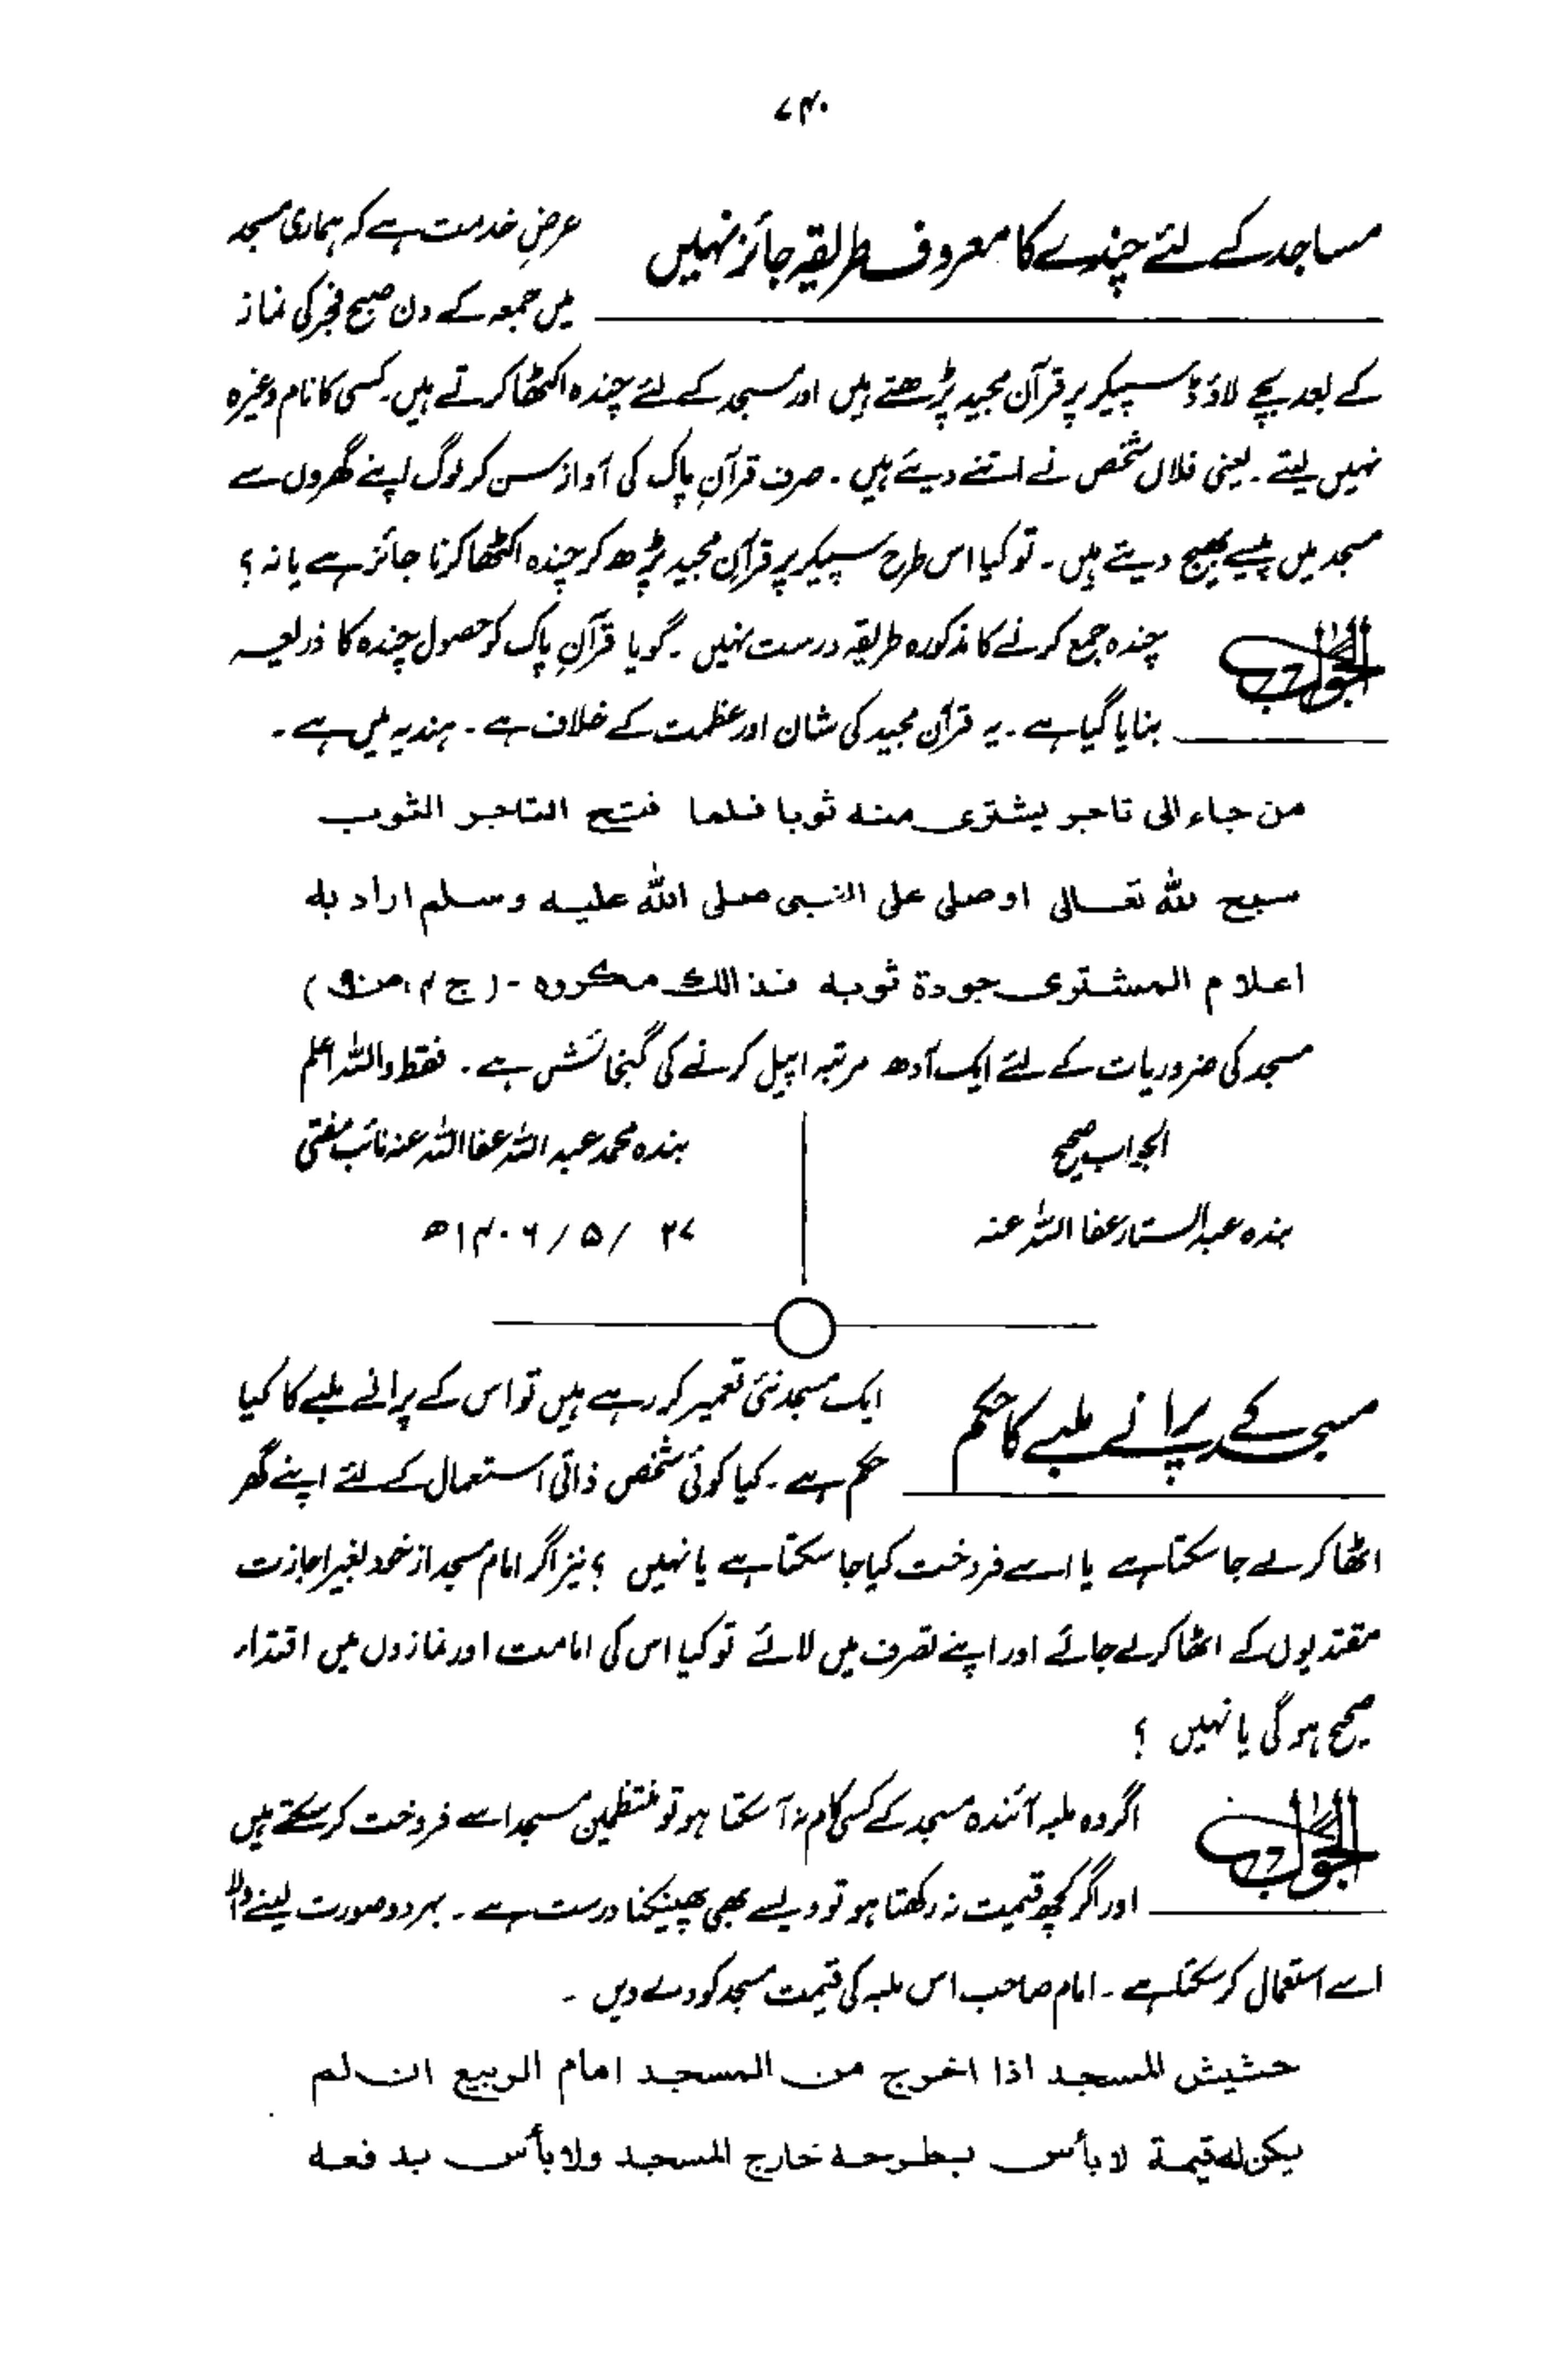 ۷۴۰
مساجد کے لئے چندے کا معروف طریقہ جائز نہیں
عرضِ خدمت ہے کہ ہماری مسجد
میں جمعہ کے دن صبح فجر کی نماز
کے بعد بچے لاؤڈ سپیکر پر قرآن مجید پڑھتے ہیں اور مسجد کے لئے چندہ اکٹھا کرتے ہیں۔ کسی کا نام وغیرہ
نہیں لیتے۔ یعنی فلاں شخص نے اتنے دیئے ہیں۔ صرف قرآنِ پاک کی آواز سن کر لوگ اپنے گھروں سے
مسجد میں پیسے بھیج دیتے ہیں۔ تو کیا اس طرح سپیکر پر قرآنِ مجید پڑھ کر چندہ اکٹھا کرنا جائز ہے یا نہ؟
الجواب
چندہ جمع کرنے کا مذکورہ طریقہ درست نہیں۔ گویا قرآنِ پاک کو حصول چندہ کا ذریعہ
بنایا گیا ہے۔ یہ قرآنِ مجید کی شان اور عظمت کے خلاف ہے۔ ہندیہ میں ہے۔
من جاء الى تاجر يشترى منه ثوبا فلما فتح التاجر الثوب
سبح لله تعالى اوصلى على النبى صلى الله عليه وسلم اراد به
اعلام المشترى جودة ثوبه فذالك مكروه - (ج ۴،
مسجد کی ضروریات کے لئے ایک آدھ مرتبہ اپیل کرنے کی گنجائش ہے۔ فقط واللہ اعلم
الجواب صحیح
بندہ عبدالستار عفا اللہ عنہ
بندہ محمد عبد اللہ عفا اللہ عنہ نائب مفتی
۲۷ / ۵ / ۱۴۰۶ھ
مسجد کے پرانے ملبے کا حکم
ایک مسجد نئی تعمیر کر رہے ہیں تو اس کے پرانے ملبے کا کیا
حکم ہے۔ کیا کوئی شخص ذاتی استعمال کے لئے اپنے گھر
اٹھا کر لے جا سکتا ہے یا اسے فروخت کیا جا سکتا ہے یا نہیں؟ نیز اگر امام مسجد از خود بغیر اجازت
مقتدیوں کے اٹھا کر لے جائے اور اپنے تصرف میں لائے تو کیا اس کی امامت اور نمازوں میں اقتداء
صحیح ہو گی یا نہیں ؟
الجواب
اگر وہ ملبہ آئندہ مسجد کے کسی کام نہ آ سکتا ہو تو منتظمین مسجد اسے فروخت کر سکتے ہیں
اور اگر کچھ قیمت نہ رکھتا ہو تو ویسے بھی پھینکنا درست ہے۔ بہر دو صورت لینے والا
اسے استعمال کر سکتا ہے۔ امام صاحب اس ملبہ کی قیمت مسجد کو دے دیں۔
حشيش المسجد اذا اخرج من المسجد امام الربيع ان لم
يكن له قيمة لا بأس بطرحه خارج المسجد ولا بأس بدفعه